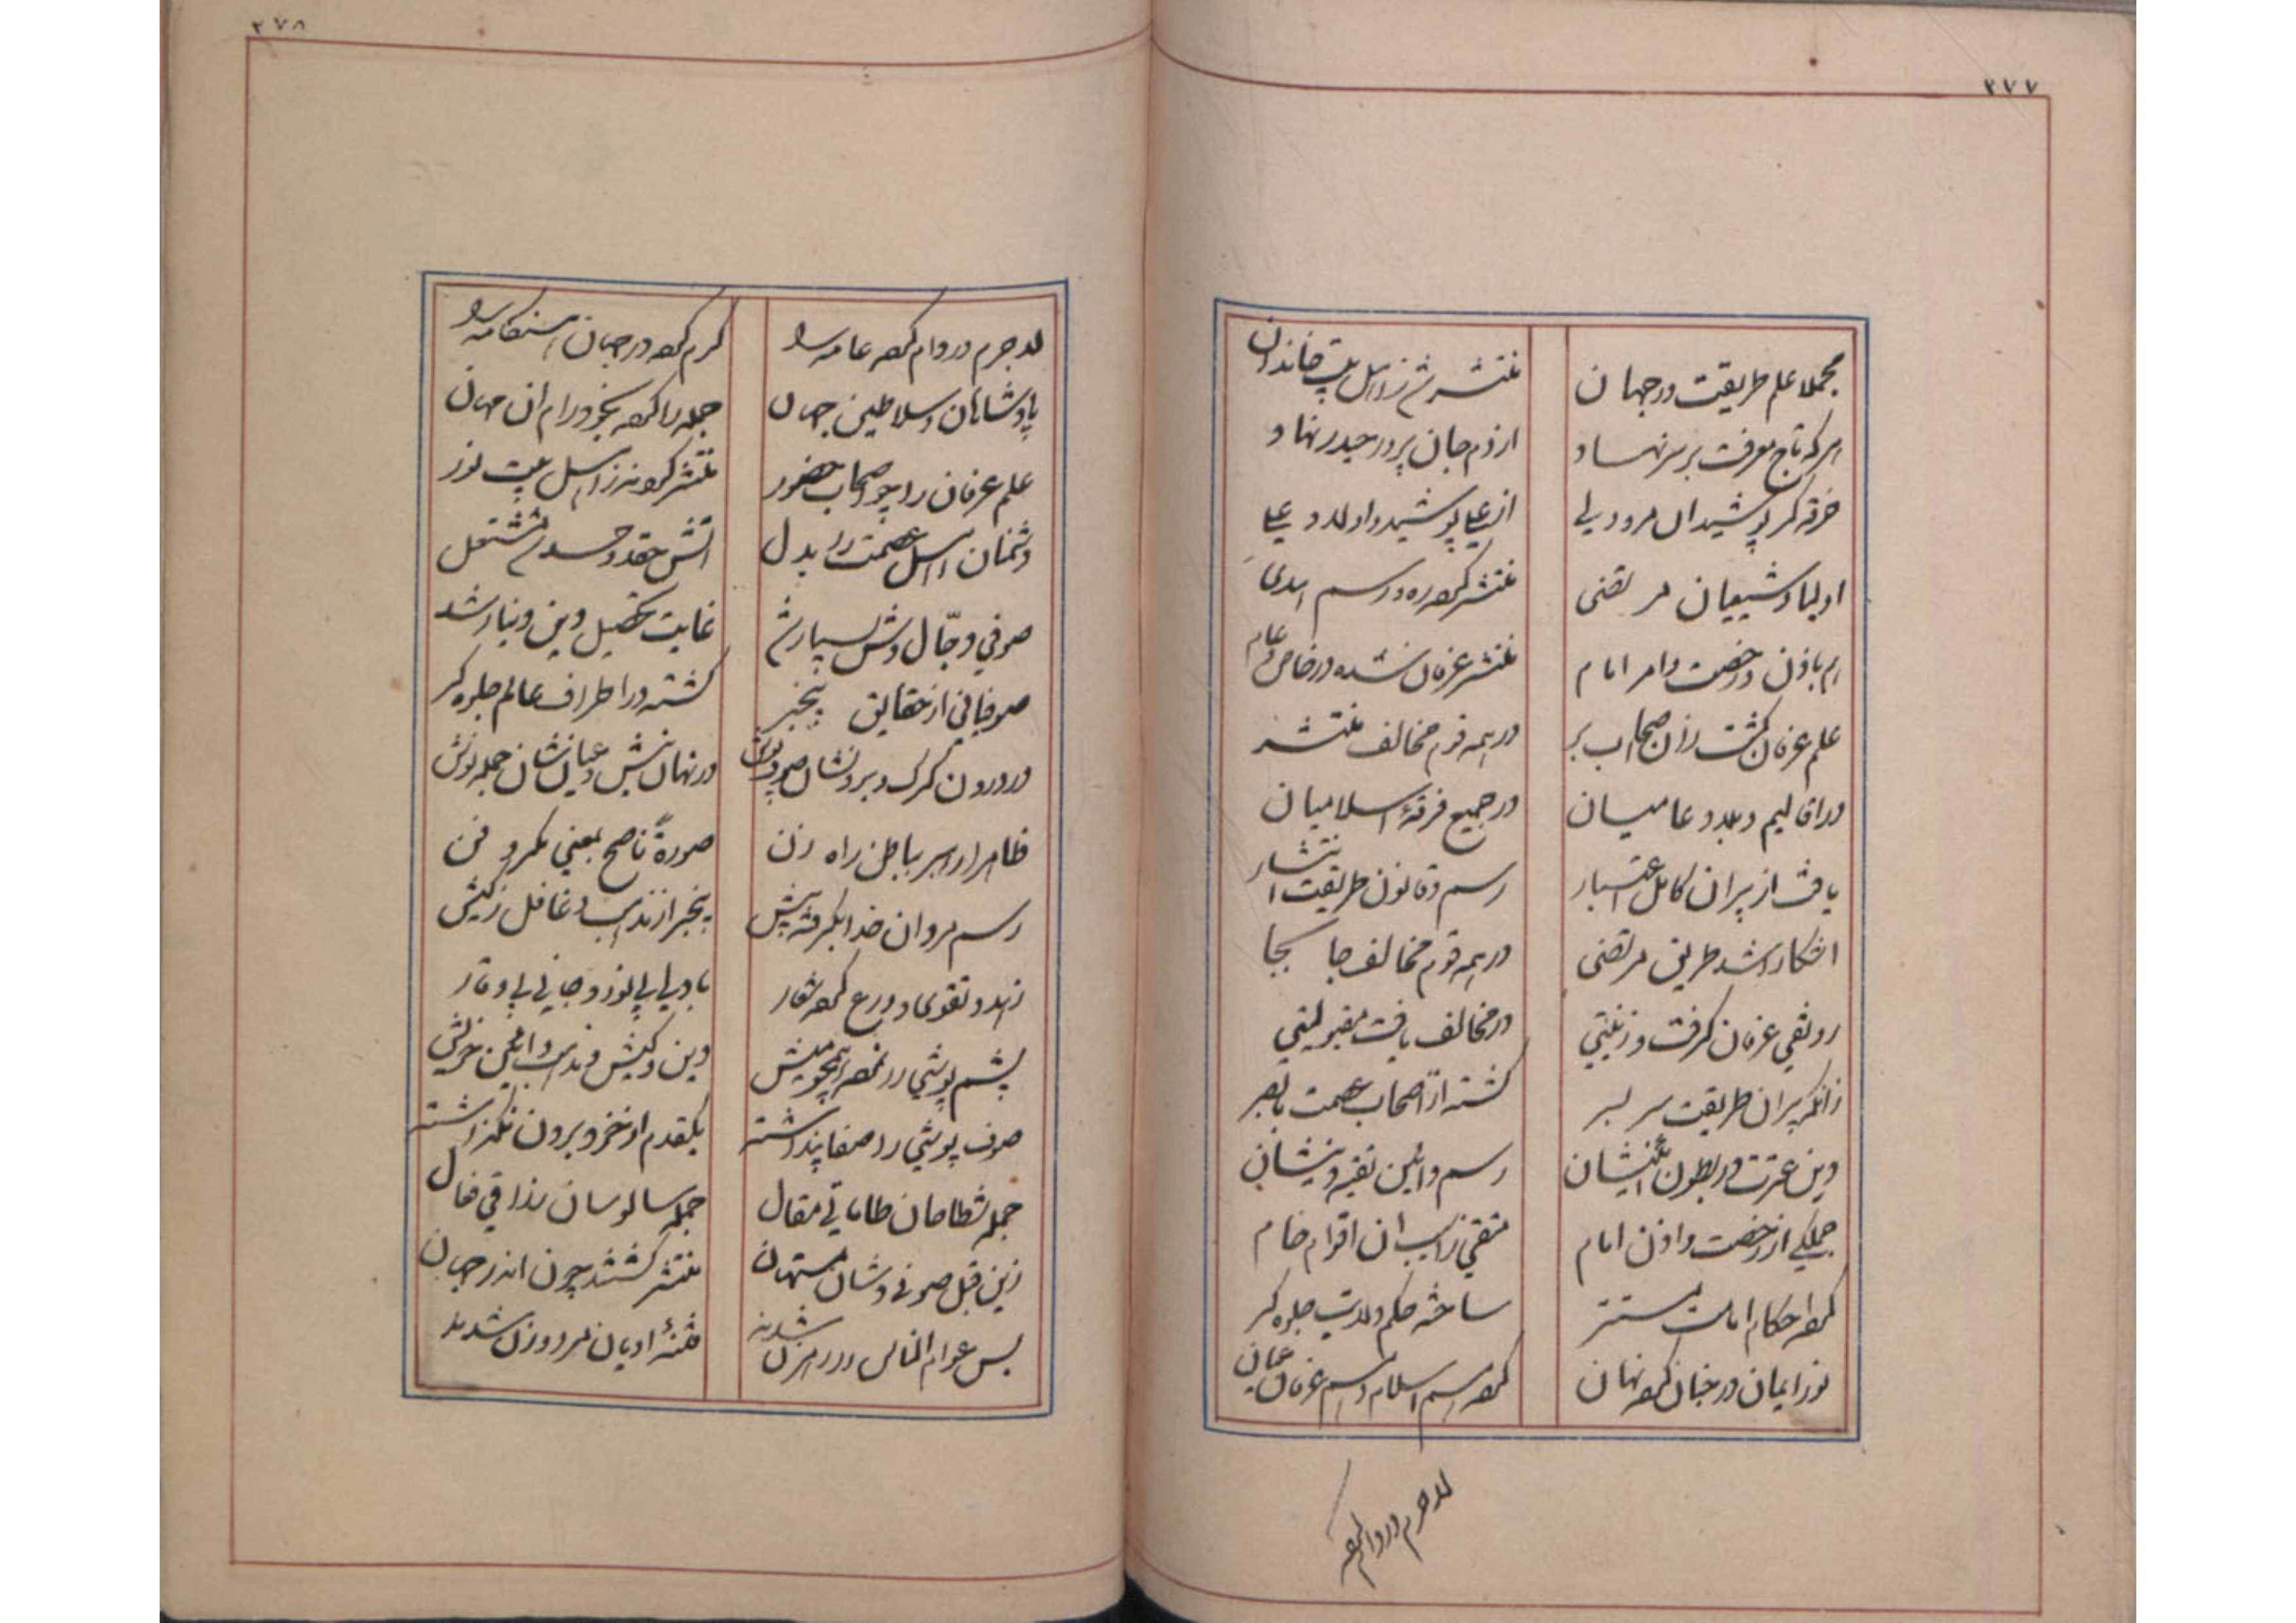 ۲۷۷
مجملا علم طریقت در جهان
منتشر شد ز اهل بیت خاندان
هر که تاج معرفت بر سر نهاد
از دم جان پرور حیدر نهاد
خرقه گر پوشید آن مرد ولی
از علی پوشید و اولاد علی
اولیا و شیعیان مرتضی
منتشر کرده ره و رسم هدی
هم باذن و رخصت و امر امام
منتشر عرفان شده در خاص و عام
علم عرفان گشت زان اصحاب بر
در همه قوم مخالف منتشر
در اقالیم و بلاد عامیان
در جمیع فرقهٔ اسلامیان
یافت از پیران کامل اعتبار
رسم و قانون طریقت انتشار
آشکارا شد طریق مرتضی
در همه قوم مخالف جا بجا
رونقی عرفان گرفت و زینتی
در مخالف یافت مقبولیتی
زانکه پیران طریقت سر بسر
گشته از اصحاب عصمت با بصر
دین عترت در بطون
رسم و آئین تقیه
جملگی از رخصت و اذن امام
متقی زآسیب آن اقوام خام
کرده احکام امامت مستتر
ساخته حکم ولایت جلوه گر
نور ایمان در جنان کرده نهان
کرده اسم اسلام و رسم عرفان عیان
لاجرم در دام کرده
۲۷۸
لاجرم در دام کرده عامه را
گرم کرده در جهان هنگامه را
پادشاهان و سلاطین جهان
جمله را کرده بخود رام آن مهان
علم عرفان را چو اصحاب حضور
منتشر کردند ز اهل بیت نور
دشمنان اهل عصمت را بدل
آتش حقد و حسد شد مشتعل
صوفی دجّال وش بسیار شد
غایت تحصیل دین دنیا شد
صوفیانی از حقایق بیخبر
گشته در اطراف عالم جلوه گر
در درون گرگ و برونشان صوف پوش
در نهان نیش و عیانشان جمله نوش
ظاهرا رهبر بباطن راه زن
صورةً ناصح بمعنی مکر و فن
رسم مردان خدا بگرفته پیش
بیخبر از مذهب و غافل ز کیش
زهد و تقوی و ورع کرده شعار
با دلی بی نور و جانی بی وقار
پشم پوشی در نمد همچو میش
دین و کیش و مذهب و آئین خویش
صوف پوشی را صفا پنداشته
یکقدم از خود برون نگذاشته
جمله شطاحان طاماتی مقال
جمله سالوسان زراقی فعال
زین قبل صوفی وشان ممتهن
منتشر گشتند چون اندر جهان
بس عوام الناس را رهزن شدند
فتنهٔ ادیان مرد و زن شدند